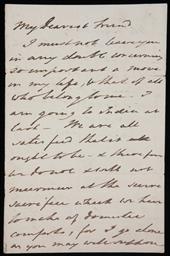 My Dearest Friend
I must not leave you
in any doubt concerning
so important a move
in my life, & that of all
who belong to me. I
am going to India at
last – We are all
satisfied that is as it
ought to be – & therefore
we do not & shall not
murmur at the severe
sacrifice which we have
to make of domestic
comforts, for I go alone
as you may well suppose